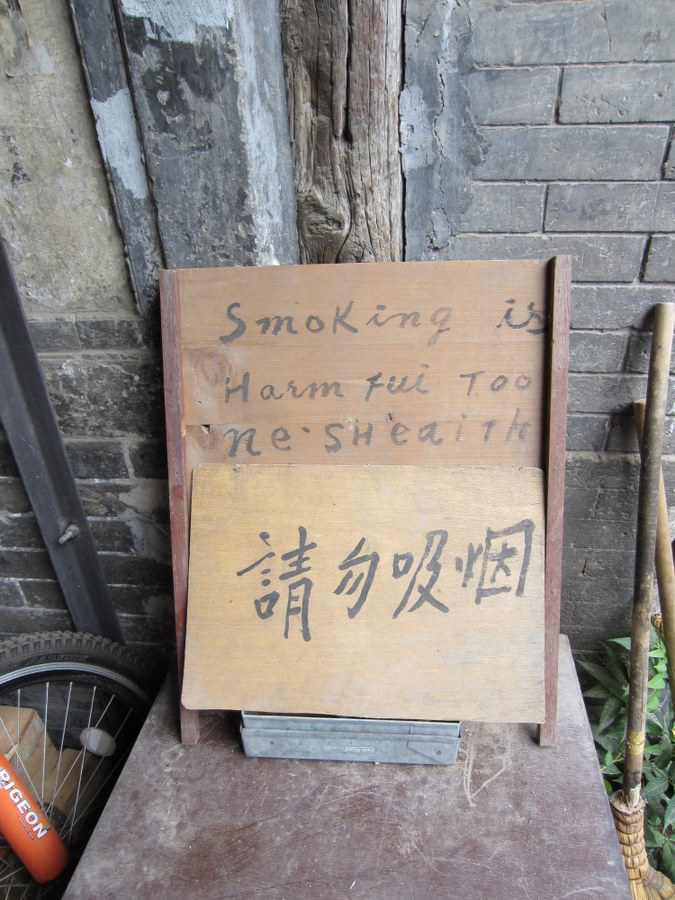 Smoking is
Harm fui Too
ne·SHeaiTh
請勿吸烟
RIGEON